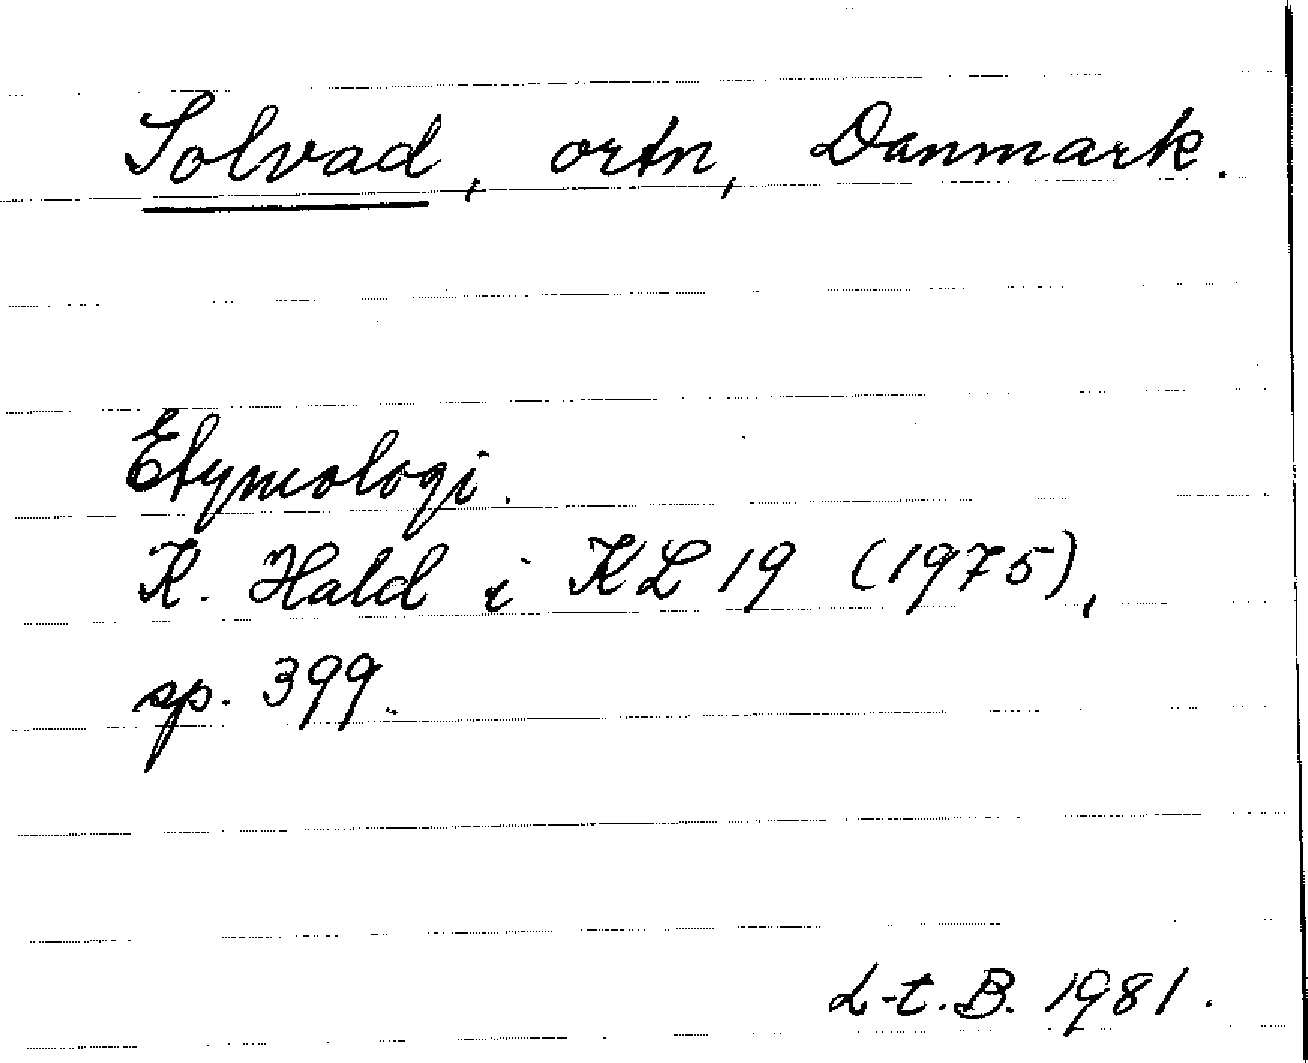 Solvad, ortn, Danmark.
Etymologi.
K. Hald i KL 19 (1975),
sp. 399.
L-t. B. 1981.